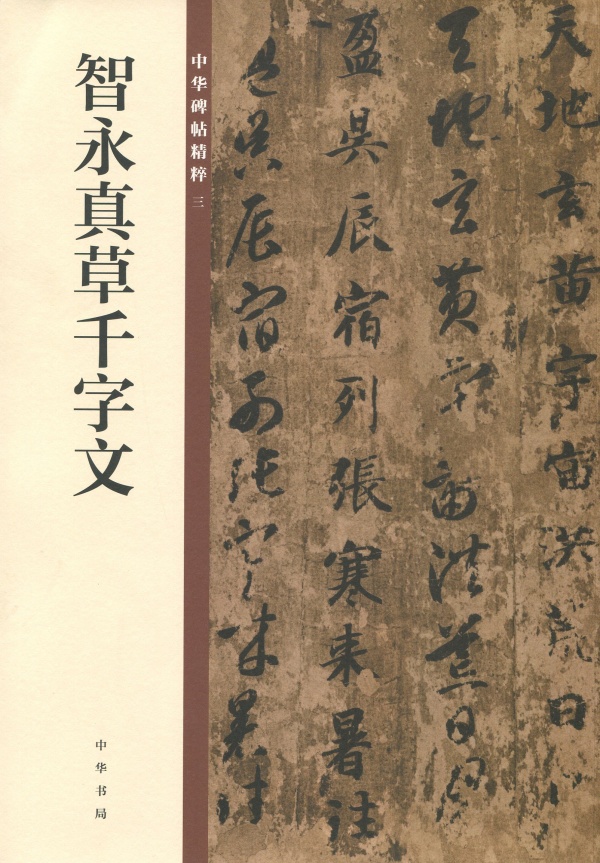 智永真草千字文
中华碑帖精粹 三
中华书局
天地玄黄宇宙洪荒日
天地玄黄宇宙洪荒日月
盈昃辰宿列張寒来暑往
盈昃辰宿列張寒来暑往